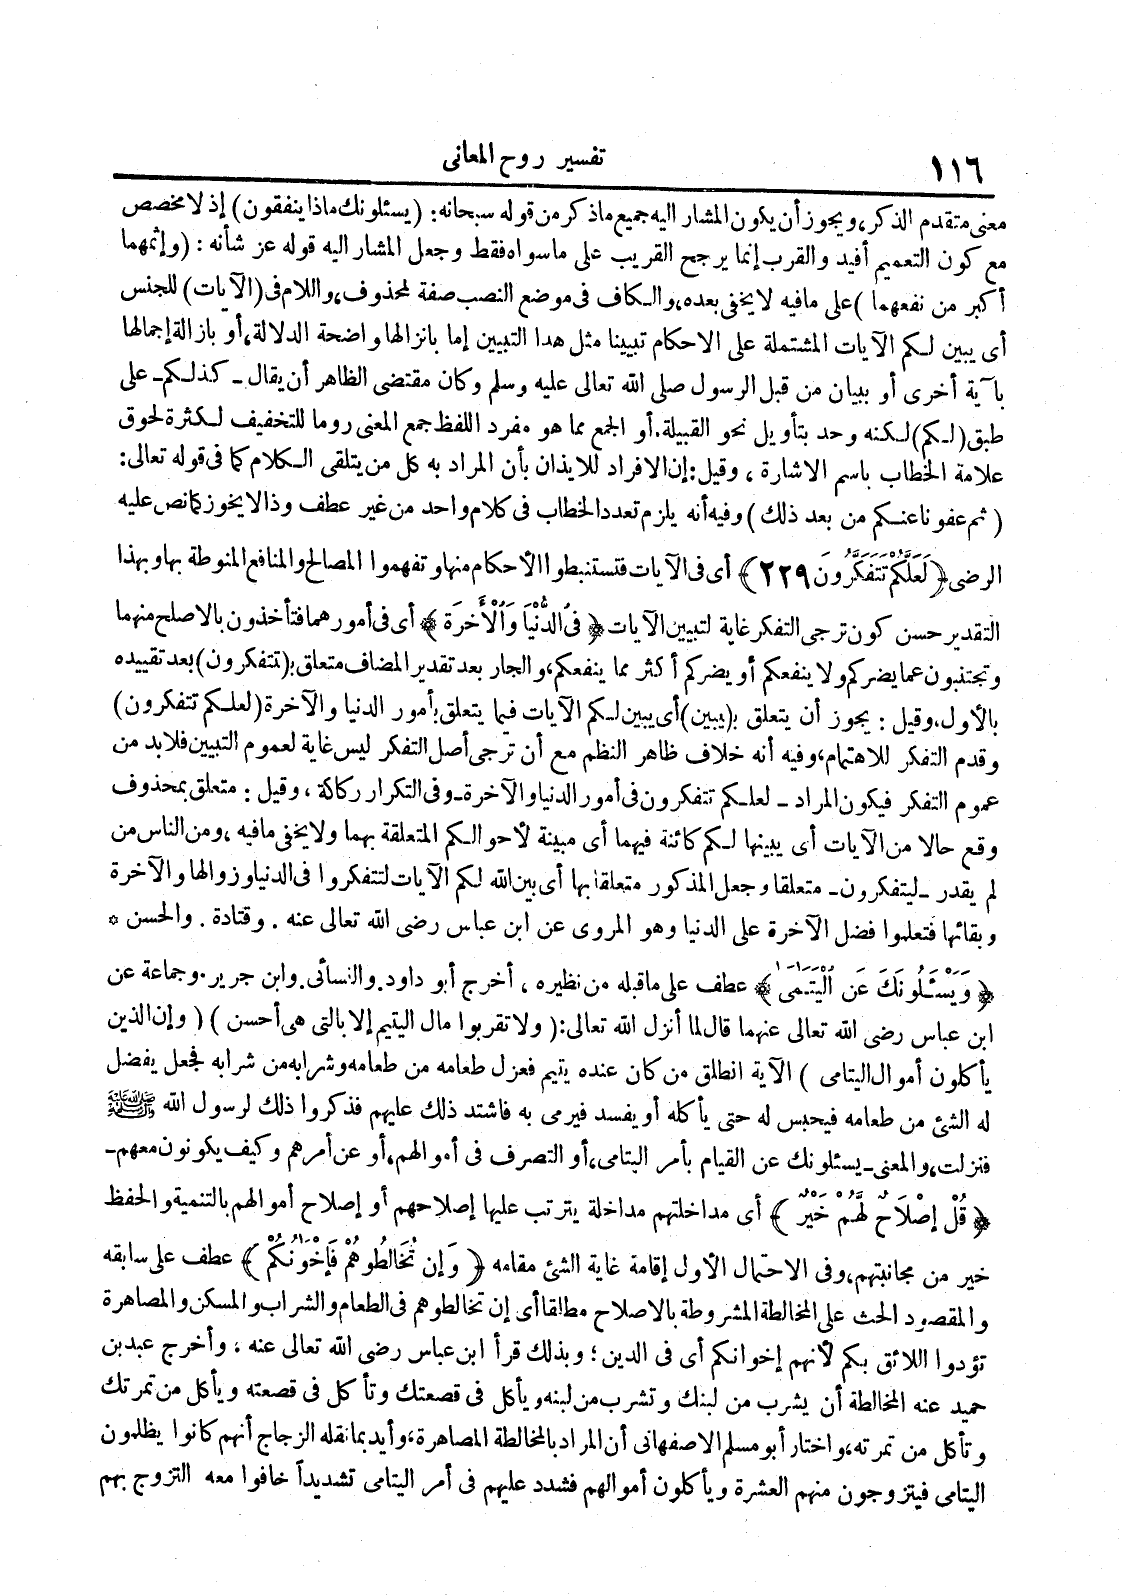 ١١٦
تفسير روح المعانى
معنى متقدم الذكر، ويجوز أن يكون المشار اليه جميع ماذكر من قوله سبحانه: (يسئلونك ماذا ينفقون) إذ لا مخصص
مع كون التعميم أفيد والقرب إنما يرجح القريب على ماسواه فقط وجعل المشار اليه قوله عز شأنه: (وإثمهما
أكبر من نفعهما) على مافيه لا يخفى بعده، والكاف فى موضع النصب صفة لمحذوف، واللام فى (الآيات) للجنس
أى يبين لكم الآيات المشتملة على الاحكام تبيينا مثل هذا التبيين إما بانزالها واضحة الدلالة، أو بازالة إجمالها
بآية أخرى أو ببيان من قبل الرسول صلى الله تعالى عليه وسلم وكان مقتضى الظاهر أن يقال ـ كذلكم ـ على
طبق (لكم) لكنه وحد بتأويل نحو القبيلة. أو الجمع مما هو مفرد اللفظ جمع المعنى روما للتخفيف لكثرة لحوق
علامة الخطاب باسم الاشارة، وقيل: إن الافراد للايذان بأن المراد به كل من يتلقى الكلام كما فى قوله تعالى:
(ثم عفونا عنكم من بعد ذلك) وفيه أنه يلزم تعدد الخطاب فى كلام واحد من غير عطف وذا لا يجوز كما نص عليه
الرضى ﴿لَعَلَّكُمْ تَتَفَكَّرُونَ ٢٢٩﴾ أى فى الآيات فتستنبطوا الأحكام منها وتفهموا المصالح والمنافع المنوطة بها وبهذا
التقدير حسن كون ترجى التفكر غاية لتبيين الآيات ﴿فِى الدُّنْيَا وَالْأَخِرَةِ﴾ أى فى أمورهما فتأخذون بالاصلح منهما
وتجتنبون عما يضركم ولا ينفعكم أو يضركم أكثر مما ينفعكم، والجار بعد تقدير المضاف متعلق ب(تتفكرون) بعد تقييده
بالأول، وقيل: يجوز أن يتعلق ب(يبين) أى يبين لكم الآيات فيما يتعلق بأمور الدنيا والآخرة (لعلكم تتفكرون)
وقدم التفكر للاهتمام، وفيه أنه خلاف ظاهر النظم مع أن ترجى أصل التفكر ليس غاية لعموم التبيين فلابد من
عموم التفكر فيكون المراد ـ لعلكم تتفكرون فى أمور الدنيا والآخرة ـ وفى التكرار ركاكة، وقيل: متعلق بمحذوف
وقع حالا من الآيات أى يبينها لكم كائنة فيهما أى مبينة لأحوالكم المتعلقة بهما ولا يخفى مافيه، ومن الناس من
لم يقدر ـ ليتفكرون ـ متعلقا وجعل المذكور متعلقا بها أى بين الله لكم الآيات لتتفكروا فى الدنيا وزوالها والآخرة
وبقائها فتعلموا فضل الآخرة على الدنيا وهو المروى عن ابن عباس رضى الله تعالى عنه. وقتادة. والحسن *
﴿وَيَسْـَٔلُونَكَ عَنِ الْيَتَـٰمَىٰ﴾ عطف على ماقبله من نظيره، أخرج أبو داود. والنسائى. وابن جرير. وجماعة عن
ابن عباس رضى الله تعالى عنهما قال لما أنزل الله تعالى: (ولا تقربوا مال اليتيم إلا بالتى هى أحسن) (وإن الذين
يأكلون أموال اليتامى) الآية انطلق من كان عنده يتيم فعزل طعامه من طعامه وشرابه من شرابه فجعل يفضل
له الشئ من طعامه فيحبس له حتى يأكله أو يفسد فيرمى به فاشتد ذلك عليهم فذكروا ذلك لرسول الله ﷺ
فنزلت، والمعنى ـ يسئلونك عن القيام بأمر اليتامى، أو التصرف فى أموالهم، أو عن أمرهم وكيف يكونون معهم ـ
﴿قُلْ إِصْلَاحٌ لَّهُمْ خَيْرٌ﴾ أى مداخلتهم مداخلة يترتب عليها إصلاحهم أو إصلاح أموالهم بالتنمية والحفظ
خير من مجانبتهم، وفى الاحتمال الأول إقامة غاية الشئ مقامه ﴿وَإِن تُخَالِطُوهُمْ فَإِخْوَٰنُكُمْ﴾ عطف على سابقه
والمقصود الحث على المخالطة المشروطة بالاصلاح مطلقا أى إن تخالطوهم فى الطعام والشراب والمسكن والمصاهرة
تؤدوا اللائق بكم لأنهم إخوانكم أى فى الدين؛ وبذلك قرأ ابن عباس رضى الله تعالى عنه، وأخرج عبد بن
حميد عنه المخالطة أن يشرب من لبنك وتشرب من لبنه ويأكل فى قصعتك وتأكل فى قصعته ويأكل من تمرتك
وتأكل من تمرته، واختار أبو مسلم الاصفهانى أن المراد بالمخالطة المصاهرة، وأيد بما نقله الزجاج أنهم كانوا يظلمون
اليتامى فيتزوجون منهم العشرة ويأكلون أموالهم فشدد عليهم فى أمر اليتامى تشديداً خافوا معه التزوج بهم